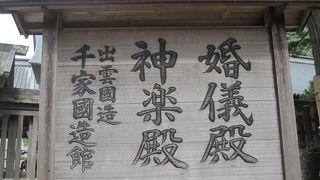 婚儀殿
神楽殿
出雲國造
千家國造館